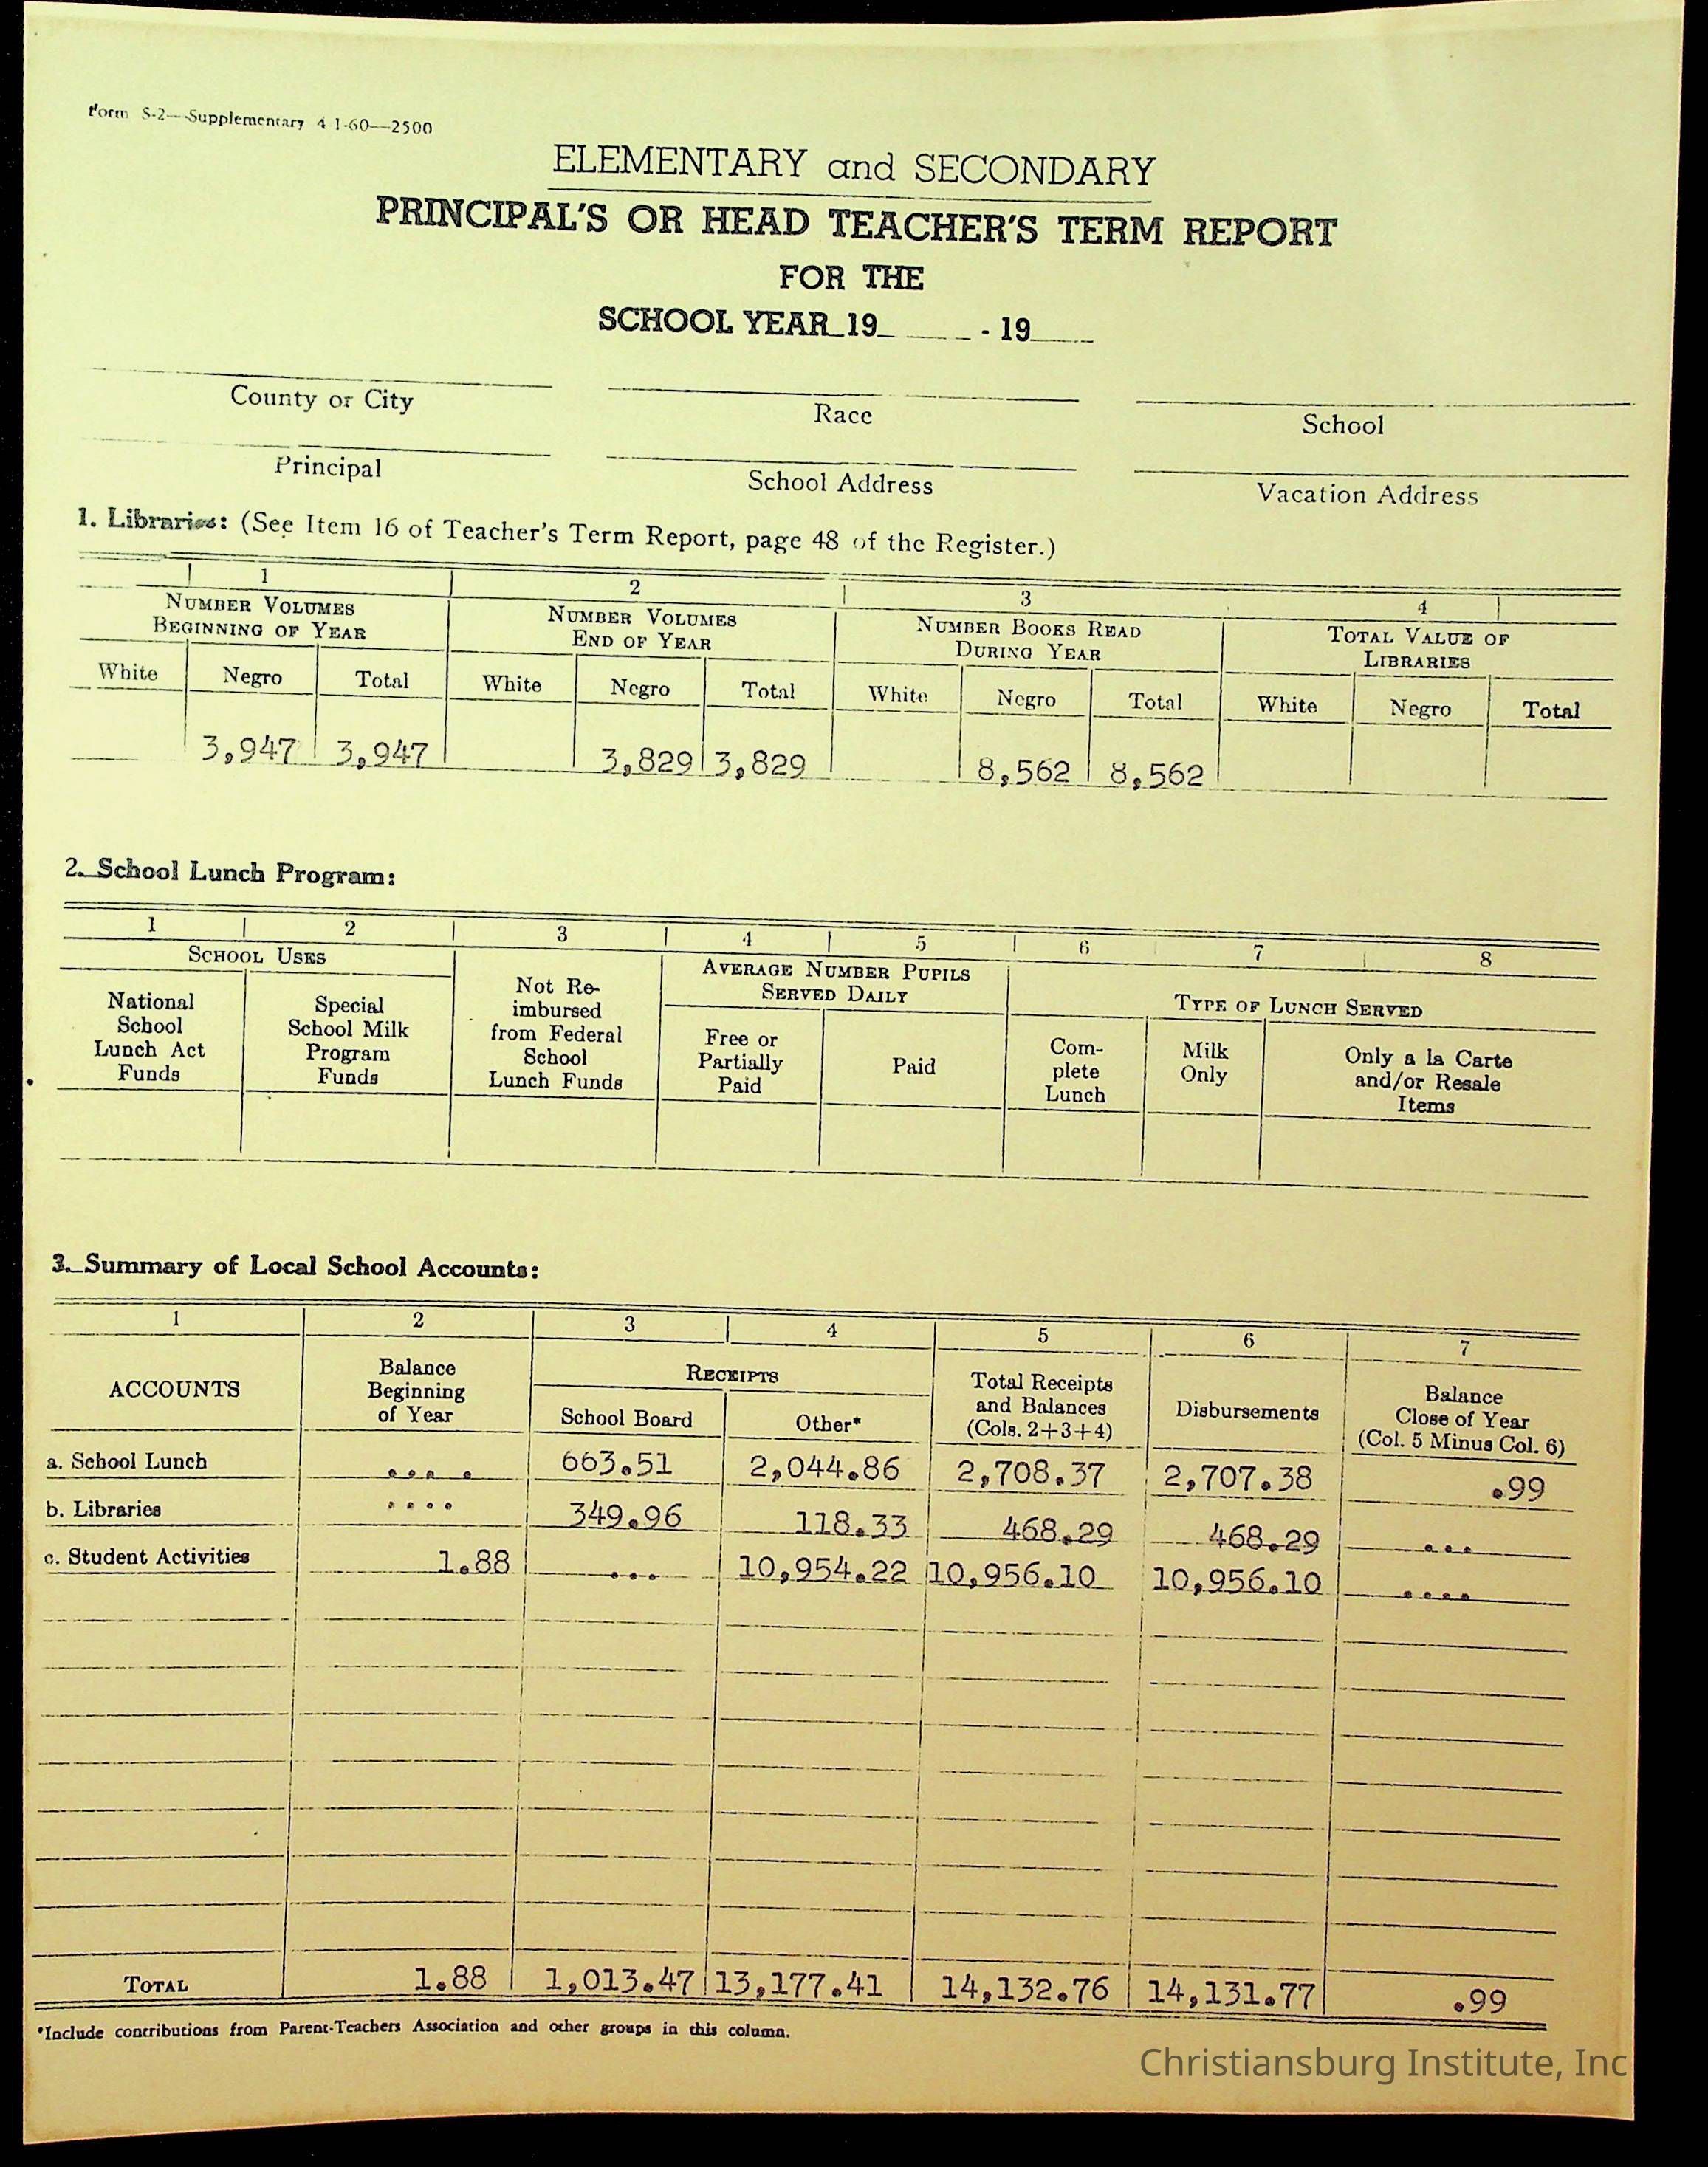 Form S-2—Supplementary 4-1-60—2500
ELEMENTARY and SECONDARY
PRINCIPAL'S OR HEAD TEACHER'S TERM REPORT
FOR THE
SCHOOL YEAR 19____ - 19____
County or City Race School
Principal School Address Vacation Address
1. Libraries: (See Item 16 of Teacher's Term Report, page 48 of the Register.)
1 2 3 4
NUMBER VOLUMES BEGINNING OF YEAR NUMBER VOLUMES END OF YEAR NUMBER BOOKS READ DURING YEAR TOTAL VALUE OF LIBRARIES
White Negro Total White Negro Total White Negro Total White Negro Total
3,947 3,947 3,829 3,829 8,562 8,562
2. School Lunch Program:
1 2 3 4 5 6 7 8
SCHOOL USES
National School Lunch Act Funds
Special School Milk Program Funds
Not Re-imbursed from Federal School Lunch Funds
AVERAGE NUMBER PUPILS SERVED DAILY
Free or Partially Paid
Paid
TYPE OF LUNCH SERVED
Com-plete Lunch
Milk Only
Only a la Carte and/or Resale Items
3. Summary of Local School Accounts:
1 2 3 4 5 6 7
ACCOUNTS
Balance Beginning of Year
RECEIPTS
School Board
Other*
Total Receipts and Balances (Cols. 2+3+4)
Disbursements
Balance Close of Year (Col. 5 Minus Col. 6)
a. School Lunch .... 663.51 2,044.86 2,708.37 2,707.38 .99
b. Libraries .... 349.96 118.33 468.29 468.29 ...
c. Student Activities 1.88 ... 10,954.22 10,956.10 10,956.10 ....
TOTAL 1.88 1,013.47 13,177.41 14,132.76 14,131.77 .99
*Include contributions from Parent-Teachers Association and other groups in this column.
Christiansburg Institute, Inc